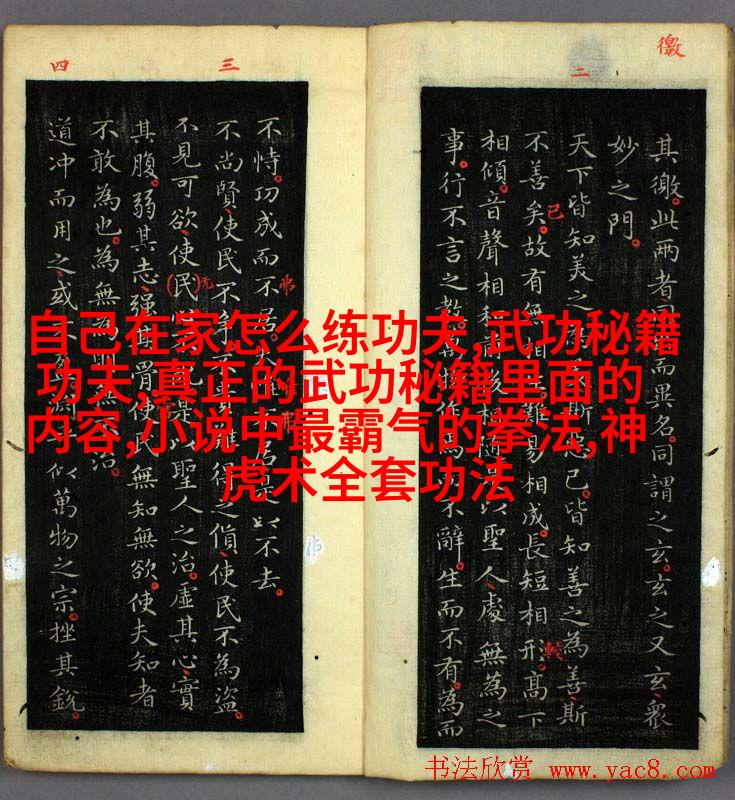 徼
二
三
四
其徼。此兩者而異名。同謂之玄。玄之又玄、眾
妙之門。
天下皆知美之斯已。皆知善之為善斯
不善矣。故有無相難易相成。長短相形。高下
相傾。音聲相相以聖人處無為之
事。行不言之教。而不辭。生而不有。為而
不恃。功成而不居。以不去。
不尚賢、使民不得之貨、使民不為盜。
不見可欲、使民是以聖人之治。虛其心、實
其腹。弱其志、强其骨使民無知無欲。使夫知者
不敢為也。為無為則無不治。
道冲而用之、或似萬物之宗。挫其銳。
自己在家怎么练功夫,武功秘籍
功夫,真正的武功秘籍里面的
内容,小说中最霸气的拳法,神
虎术全套功法
书法欣赏 www.yac8.com